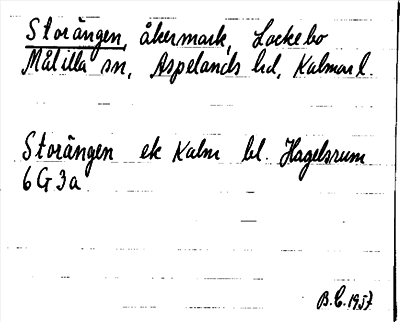 Storängen, åkermark, Lockebo
Målilla sn, Aspelands hd, Kalmar l.
Storängen ek Kalm bl. Hagelsrum
6G3a
B.C. 1957